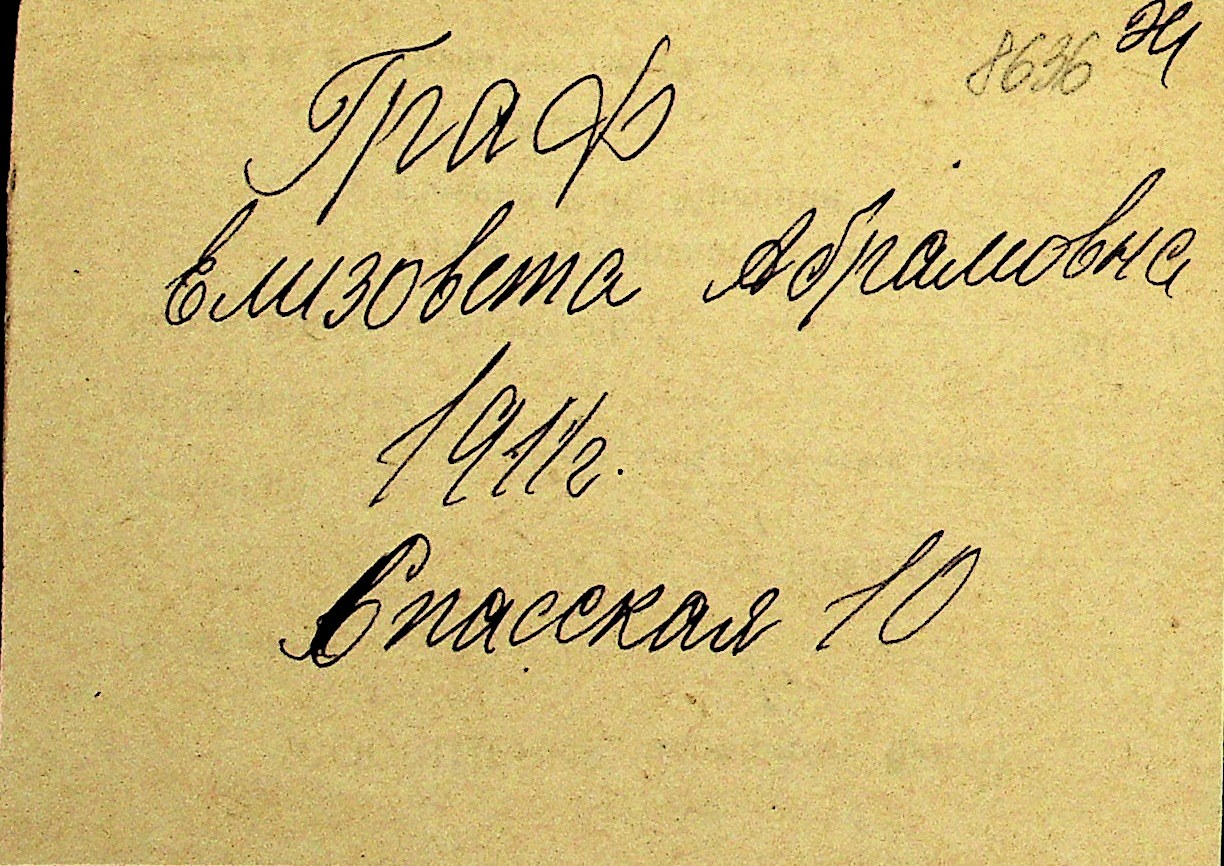 8636
Граф
Елизовета Абрамовна
1911г.
Спасская 10